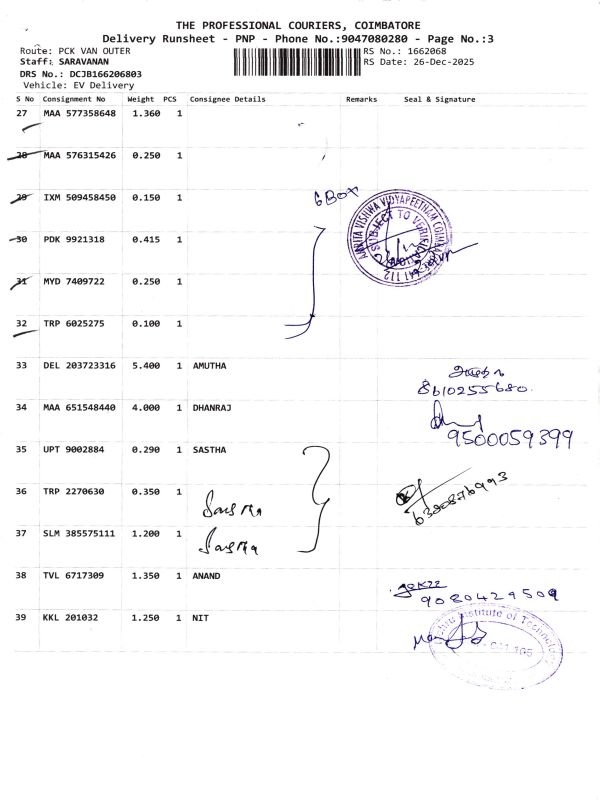 THE PROFESSIONAL COURIERS, COIMBATORE
Delivery Runsheet - PNP - Phone No.:9047080280 - Page No.:3
Route: PCK VAN OUTER
RS No.: 1662068
Staff: SARAVANAN
RS Date: 26-Dec-2025
DRS No.: DCJB166206803
Vehicle: EV Delivery
S No Consignment No Weight PCS Consignee Details Remarks Seal & Signature
27 MAA 577358648 1.360 1
28 MAA 576315426 0.250 1
29 IXM 509458450 0.150 1
6 Box
AMRITA VISHWA VIDYAPEETHAM COIMBATORE
SUBJECT TO VERIFICATION
641 112
30 PDK 9921318 0.415 1
31 MYD 7409722 0.250 1
32 TRP 6025275 0.100 1
33 DEL 203723316 5.400 1 AMUTHA
8610255680.
34 MAA 651548440 4.000 1 DHANRAJ
9500059399
35 UPT 9002884 0.290 1 SASTHA
36 TRP 2270630 0.350 1 Sastha
6380876993
37 SLM 385575111 1.200 1 Sastha
38 TVL 6717309 1.350 1 ANAND
9080429509
39 KKL 201032 1.250 1 NIT
Institute of Technology